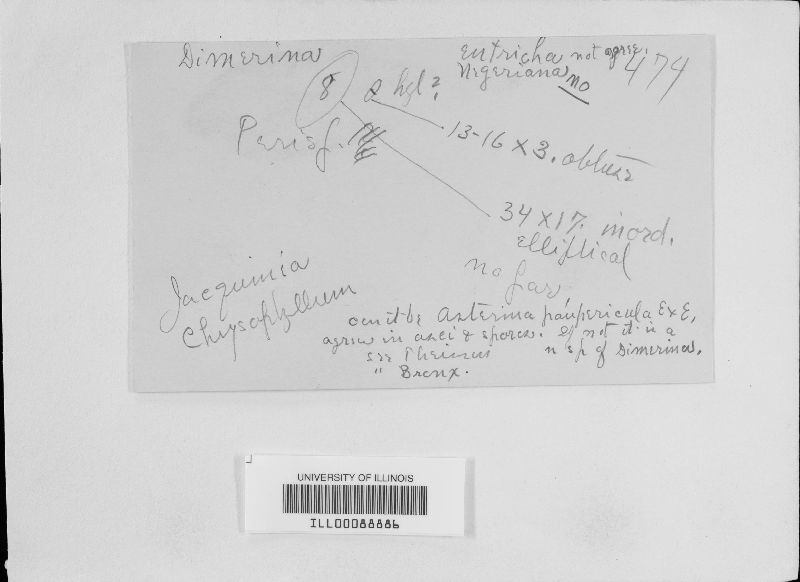 Dimerina
eutricha not agree.
Nigeriana no
474
8
2 hyl?
Perisf.
13-16 x 3. obtuse
34 x 17. inord.
elliptical
no par
Jacquinia
Chrysophyllum
can it be Asterina paupericula E x E,
agrees in asci & spores. If not it is a
n sp of Dimerina.
see Theissus
" Bronx.
UNIVERSITY OF ILLINOIS
ILL00088886